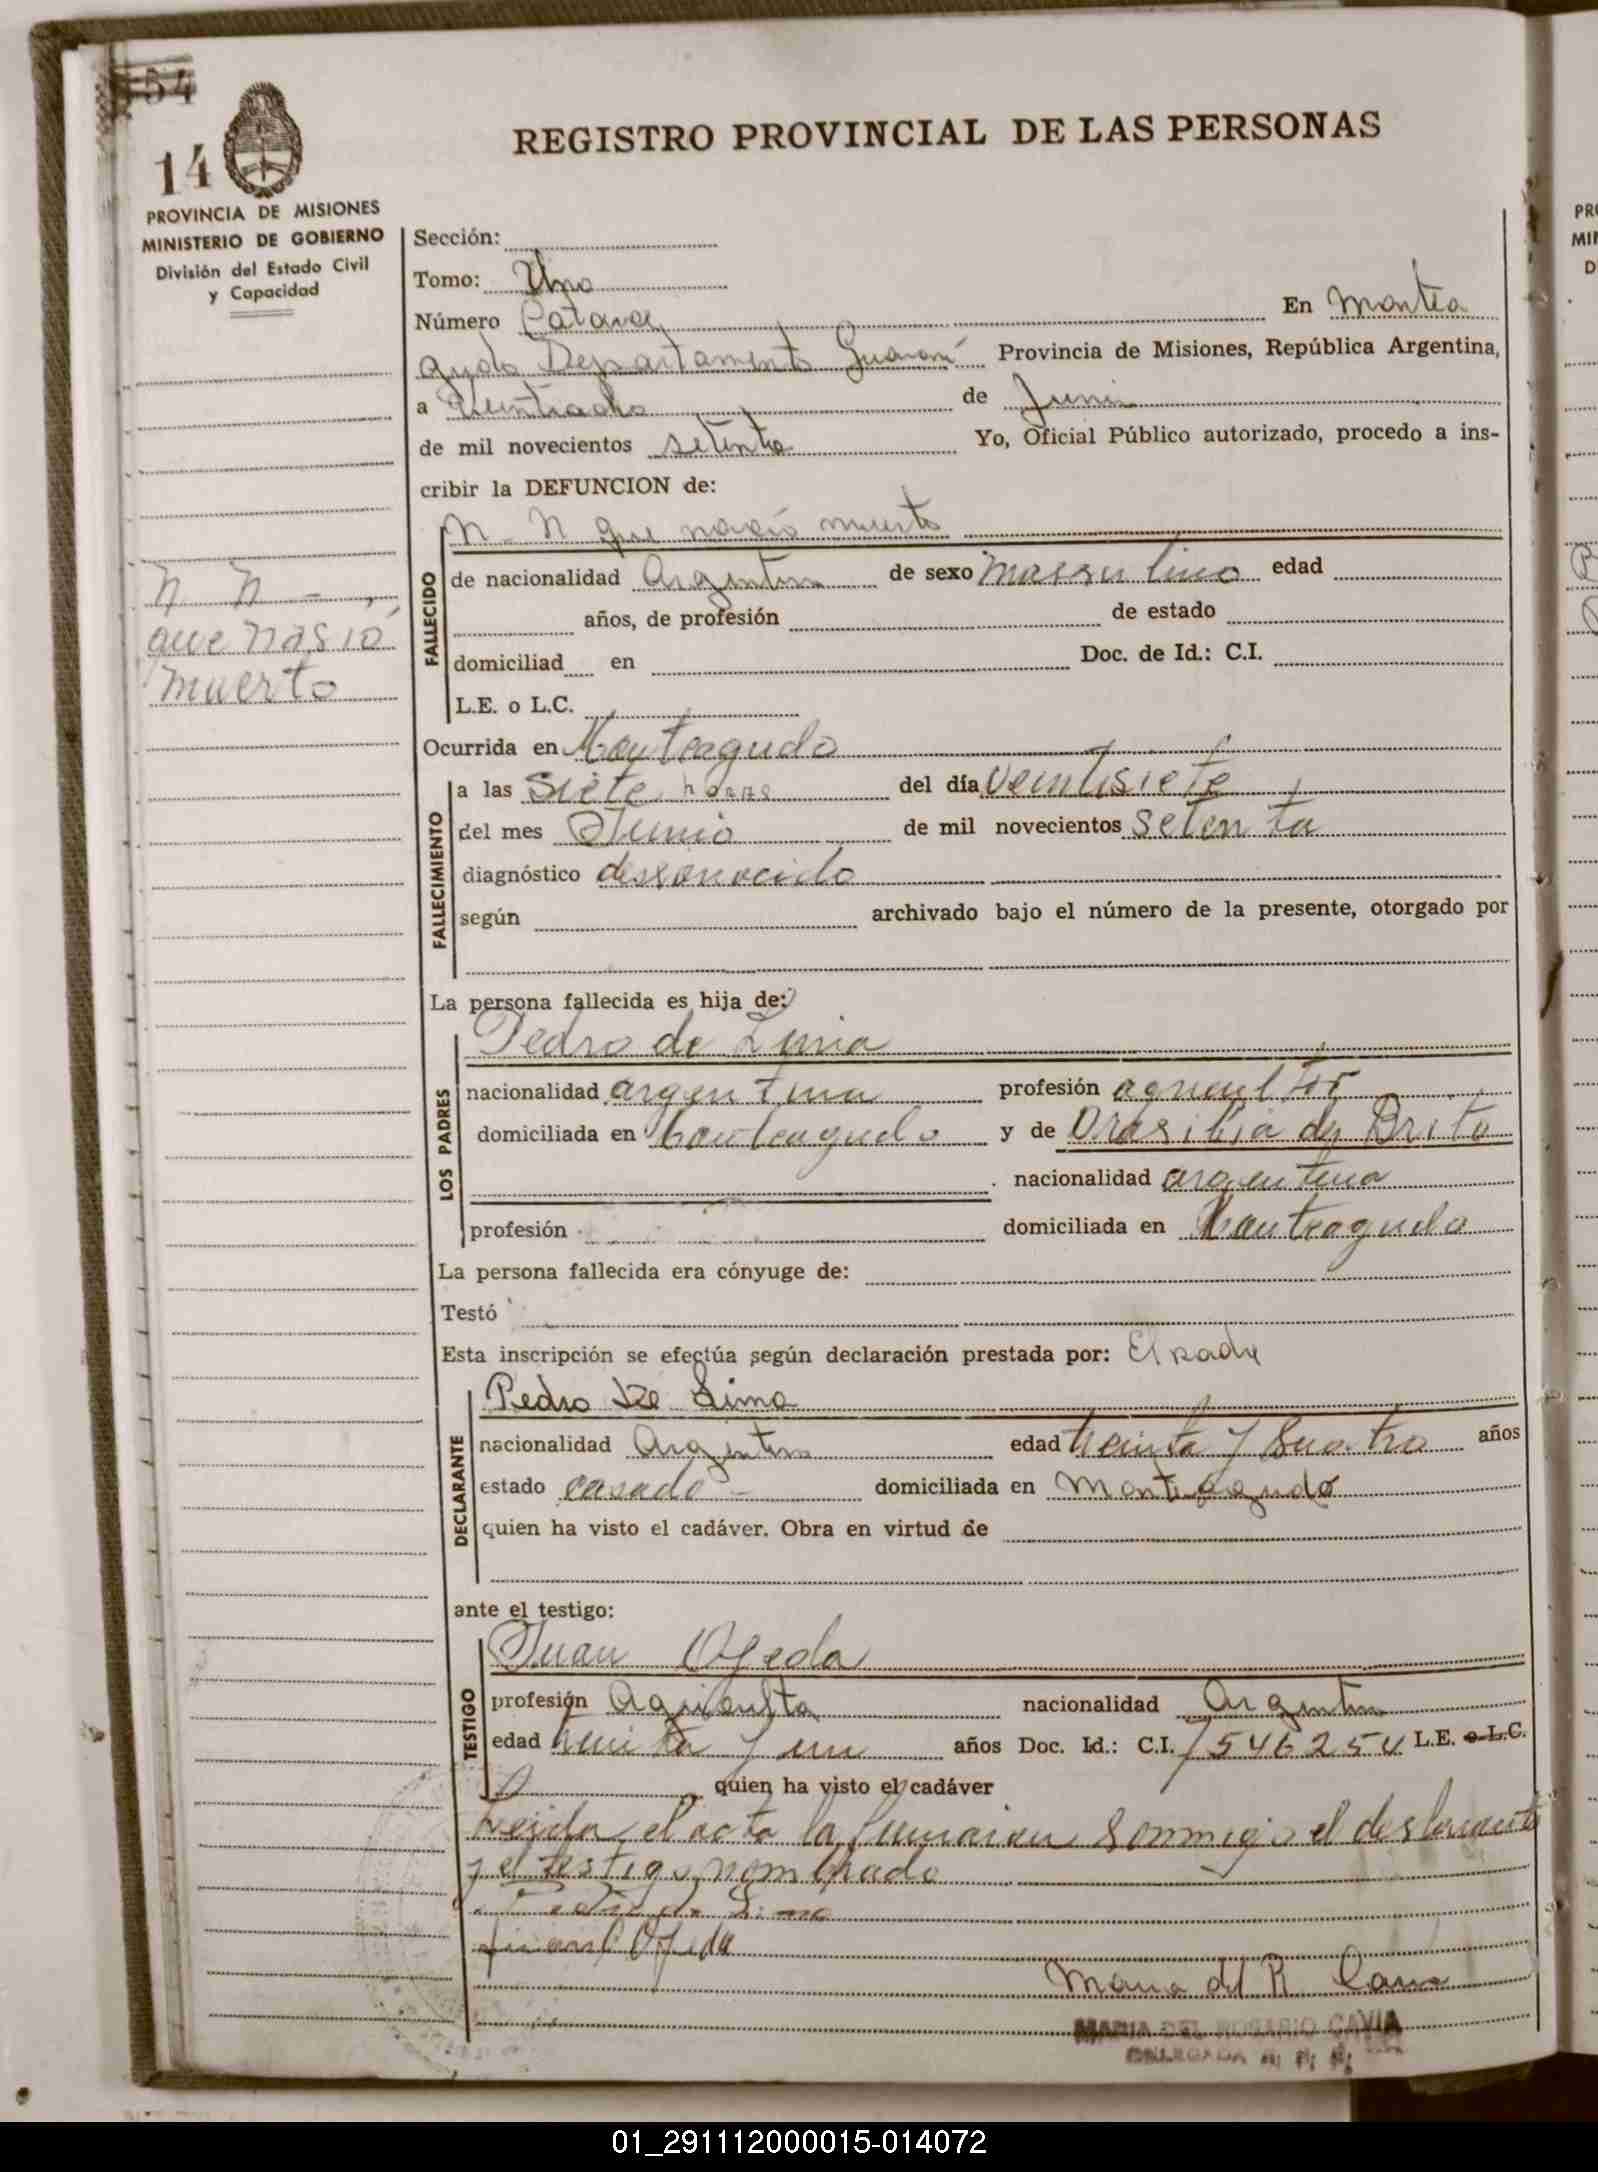 54
14
REGISTRO PROVINCIAL DE LAS PERSONAS
PROVINCIA DE MISIONES
MINISTERIO DE GOBIERNO
División del Estado Civil
y Capacidad
Sección:
Tomo: Uno
Número Catorce En Montea
gudo Departamento Guaraní Provincia de Misiones, República Argentina,
a de Junio
de mil novecientos setenta Yo, Oficial Público autorizado, procedo a ins-
cribir la DEFUNCION de:
N - N que nació muerto
N N - ,
que nasió
muerto
FALLECIDO
de nacionalidad Argentina de sexo masculino edad
años, de profesión de estado
domiciliad en Doc. de Id.: C.I.
L.E. o L.C.
Ocurrida en Monteagudo
FALLECIMIENTO
a las siete horas del día veintisiete
del mes Junio de mil novecientos setenta
diagnóstico desconocido
según archivado bajo el número de la presente, otorgado por
La persona fallecida es hija de:
LOS PADRES
Pedro de Lima
nacionalidad argentina profesión agricultor
domiciliada en Monteagudo y de Orasilia de Brito
nacionalidad argentina
profesión domiciliada en Monteagudo
La persona fallecida era cónyuge de:
Testó
Esta inscripción se efectúa según declaración prestada por: El padre
DECLARANTE
Pedro De Lima
nacionalidad Argentina edad treinta y cuatro años
estado casado - domiciliada en Monteagudo
quien ha visto el cadáver. Obra en virtud de
ante el testigo:
TESTIGO
Juan Ojeda
profesión Agricultor nacionalidad Argentina
edad treinta y un años Doc. Id.: C.I. 7546254 L.E. o L.C.
quien ha visto el cadáver
Leida el acta la firmaron conmigo el declarante
y el testigo nombrado
Pedro de Lima
Juan Ojeda
Maria del R. Cavia
MARIA DEL ROSARIO CAVIA
DELEGADA R. P. P.
01_291112000015-014072